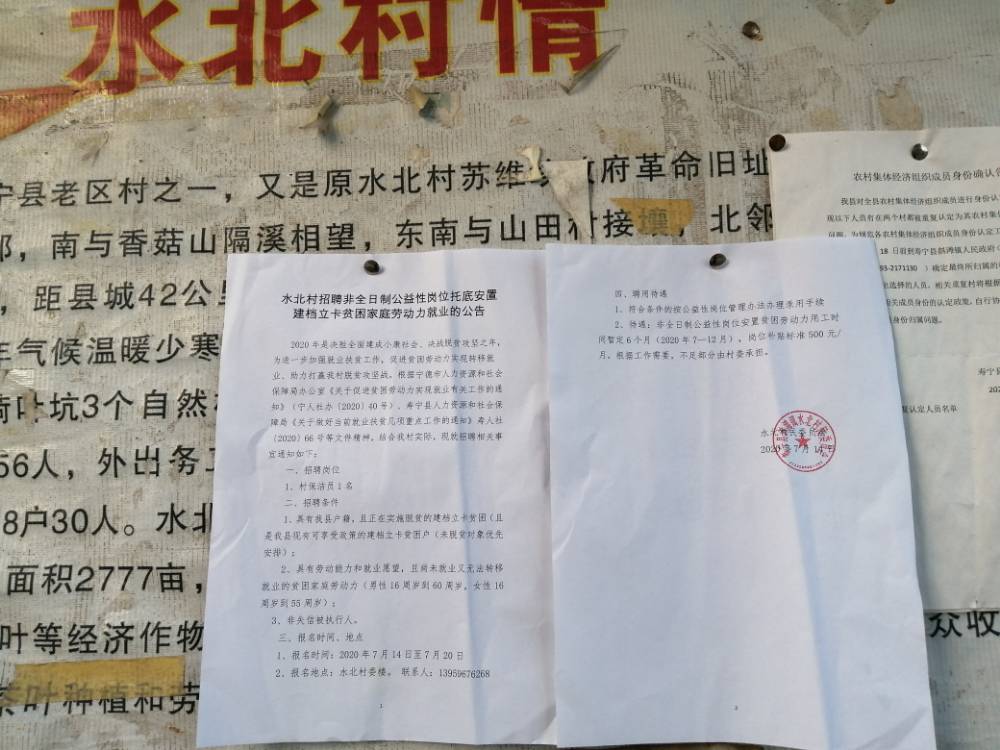 水北村情
宁县老区村之一，又是原水北村苏维
府革命旧址
南与香菇山隔溪相望，东南与山田村接壤，北邻
，距县城42公里
年气候温暖少寒
坑3个自然
56人，外出务工
8户30人。水北
面积2777亩，
叶等经济作物
茶叶种植和劳
众收
水北村招聘非全日制公益性岗位托底安置
建档立卡贫困家庭劳动力就业的公告
2020年是决胜全面建成小康社会、决战脱贫攻坚之年，
为进一步加强就业扶贫工作，促进贫困劳动力实现转移就
业、助力打赢我村脱贫攻坚战。根据宁德市人力资源和社会
保障局办公室《关于促进贫困劳动力实现就业有关工作的通
知》（宁人社办〔2020〕40号）、寿宁县人力资源和社会保
障局《关于做好当前就业扶贫几项重点工作的通知》寿人社
〔2020〕66号等文件精神，结合我村实际，现就招聘相关事
宜通知如下：
一、招聘岗位
1、村保洁员1名
二、招聘条件
1、具有我县户籍，且正在实施脱贫的建档立卡贫困（且
是我县现有可享受政策的建档立卡贫困户（未脱贫对象优先
安排）；
2、具有劳动能力和就业愿望，且尚未就业又无法转移
就业的贫困家庭劳动力（男性16周岁到60周岁，女性16
周岁到55周岁）；
3、非失信被执行人。
三、报名时间、地点
1、报名时间：2020年7月14日至7月20日
2、报名地点：水北村委楼。 联系人：13959676268
1
四、聘用待遇
1、符合条件的按公益性岗位管理办法办理录用手续
2、待遇：非全日制公益性岗位安置贫困劳动力用工时
间暂定6个月（2020年7—12月），岗位补贴标准500元/
月。根据工作需要，不足部分由村委承担。
2020年7月14日
2
农村集体经济组织成员身份确认
我县对全县农村集体经济组织成员进行身份认
现以下人员有在两个村都被重复认定为其农村集
问题，为规范各农村集体经济组织成员身份认定工
18日前到寿宁县斜滩镇人民政府
93-2171130）确定最终所归属的
选择的人员，相关重复村将根据
相关成员身份的认定政策，自行协
身份归属问题。
寿宁县
202
复认定人员名单